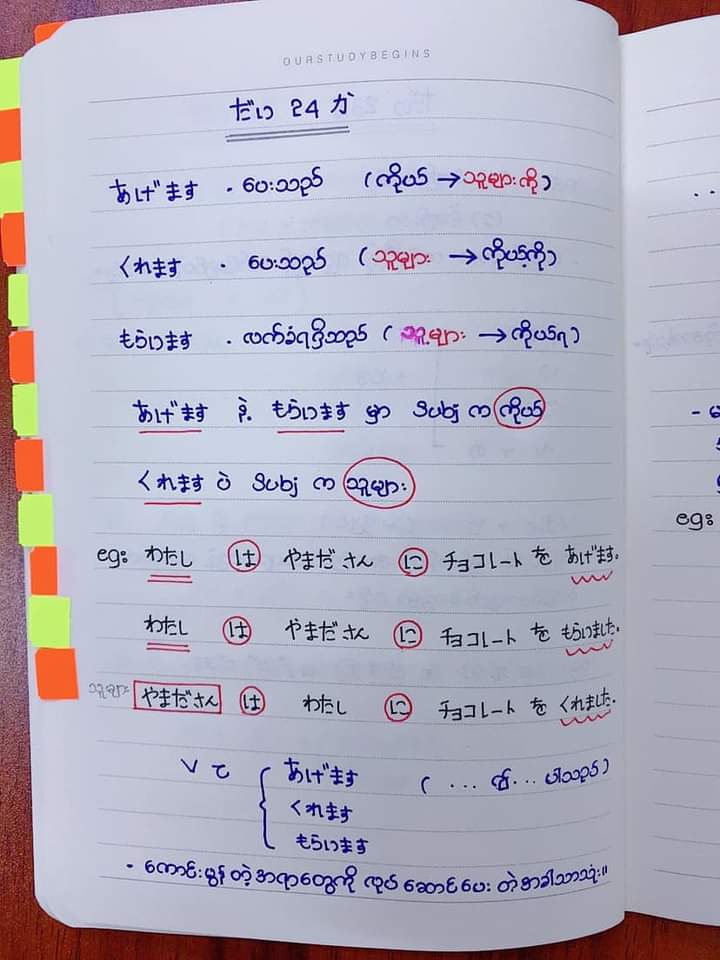 OURSTUDYBEGINS
だい 24 か
あげます - ပေးသည် (ကိုယ် → သူများကို)
くれます - ပေးသည် (သူများ → ကိုယ့်ကို)
もらいます - လက်ခံရရှိသည် (သူများ → ကိုယ်ရ)
あげます နဲ့ もらいます မှာ Subj က ကိုယ်
くれます ပဲ Subj က သူများ
eg: わたし は やまださん に チョコレート を あげます。
わたし は やまださん に チョコレート を もらいました。
သူများ やまださん は わたし に チョコレート を くれました。
V て { あげます (...၍... ပါသည်)
くれます
もらいます
- ကောင်းမွန်တဲ့အရာတွေကို လုပ်ဆောင်ပေးတဲ့အခါသာသုံး။
eg: